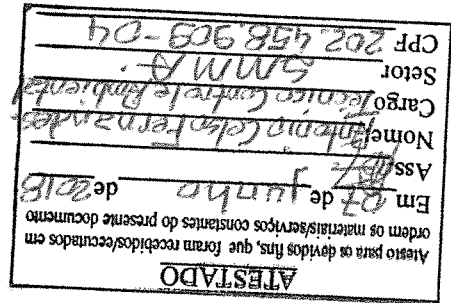 ATESTADO
Atesto para os devidos fins, que foram recebidos/executados em
ordem os materiais/serviços constantes do presente documento
Em 07 de junho de 2018
Ass
Nome Antonio Celso Fernandes
Cargo Técnico Controle Ambiental
Setor SMMA.
CPF 202.458.909-04